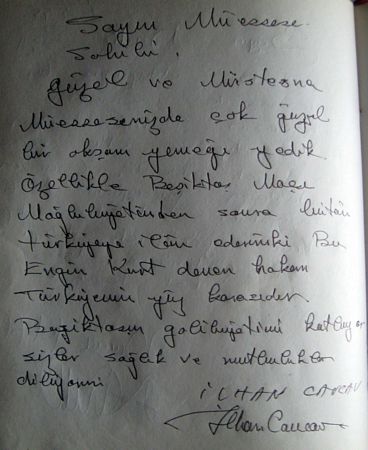 Sayın Müessese
Sahibi.
güzel ve Müstesna
Müessesenizde çok güzel
bir akşam yemeği yedik
Özellikle Beşiktaş Maçı
Mağlubiyetinden sonra bütün
Türkiyeye ilân ederimki Bu
Engin Kurt denen hakem
Türkiyenin yüz karasıdır.
Beşiktaşın galibiyetini kutluyor
sizler sağlık ve mutluluklar
diliyorum
İLHAN CAVCAV
İlhan Cavcav